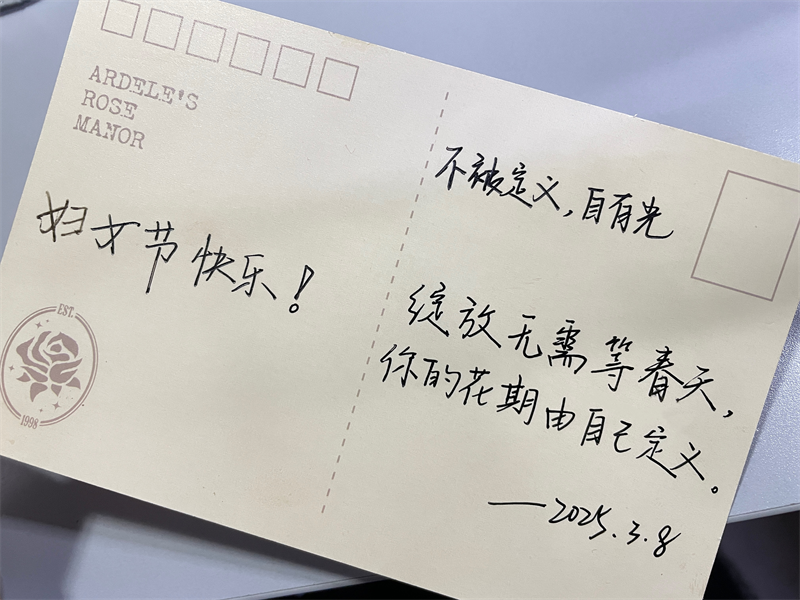 ARDELE'S
ROSE
MANOR
妇女节快乐！
EST.
1998
不被定义，自有光
绽放无需等春天，
你的花期由自己定义。
——2025.3.8